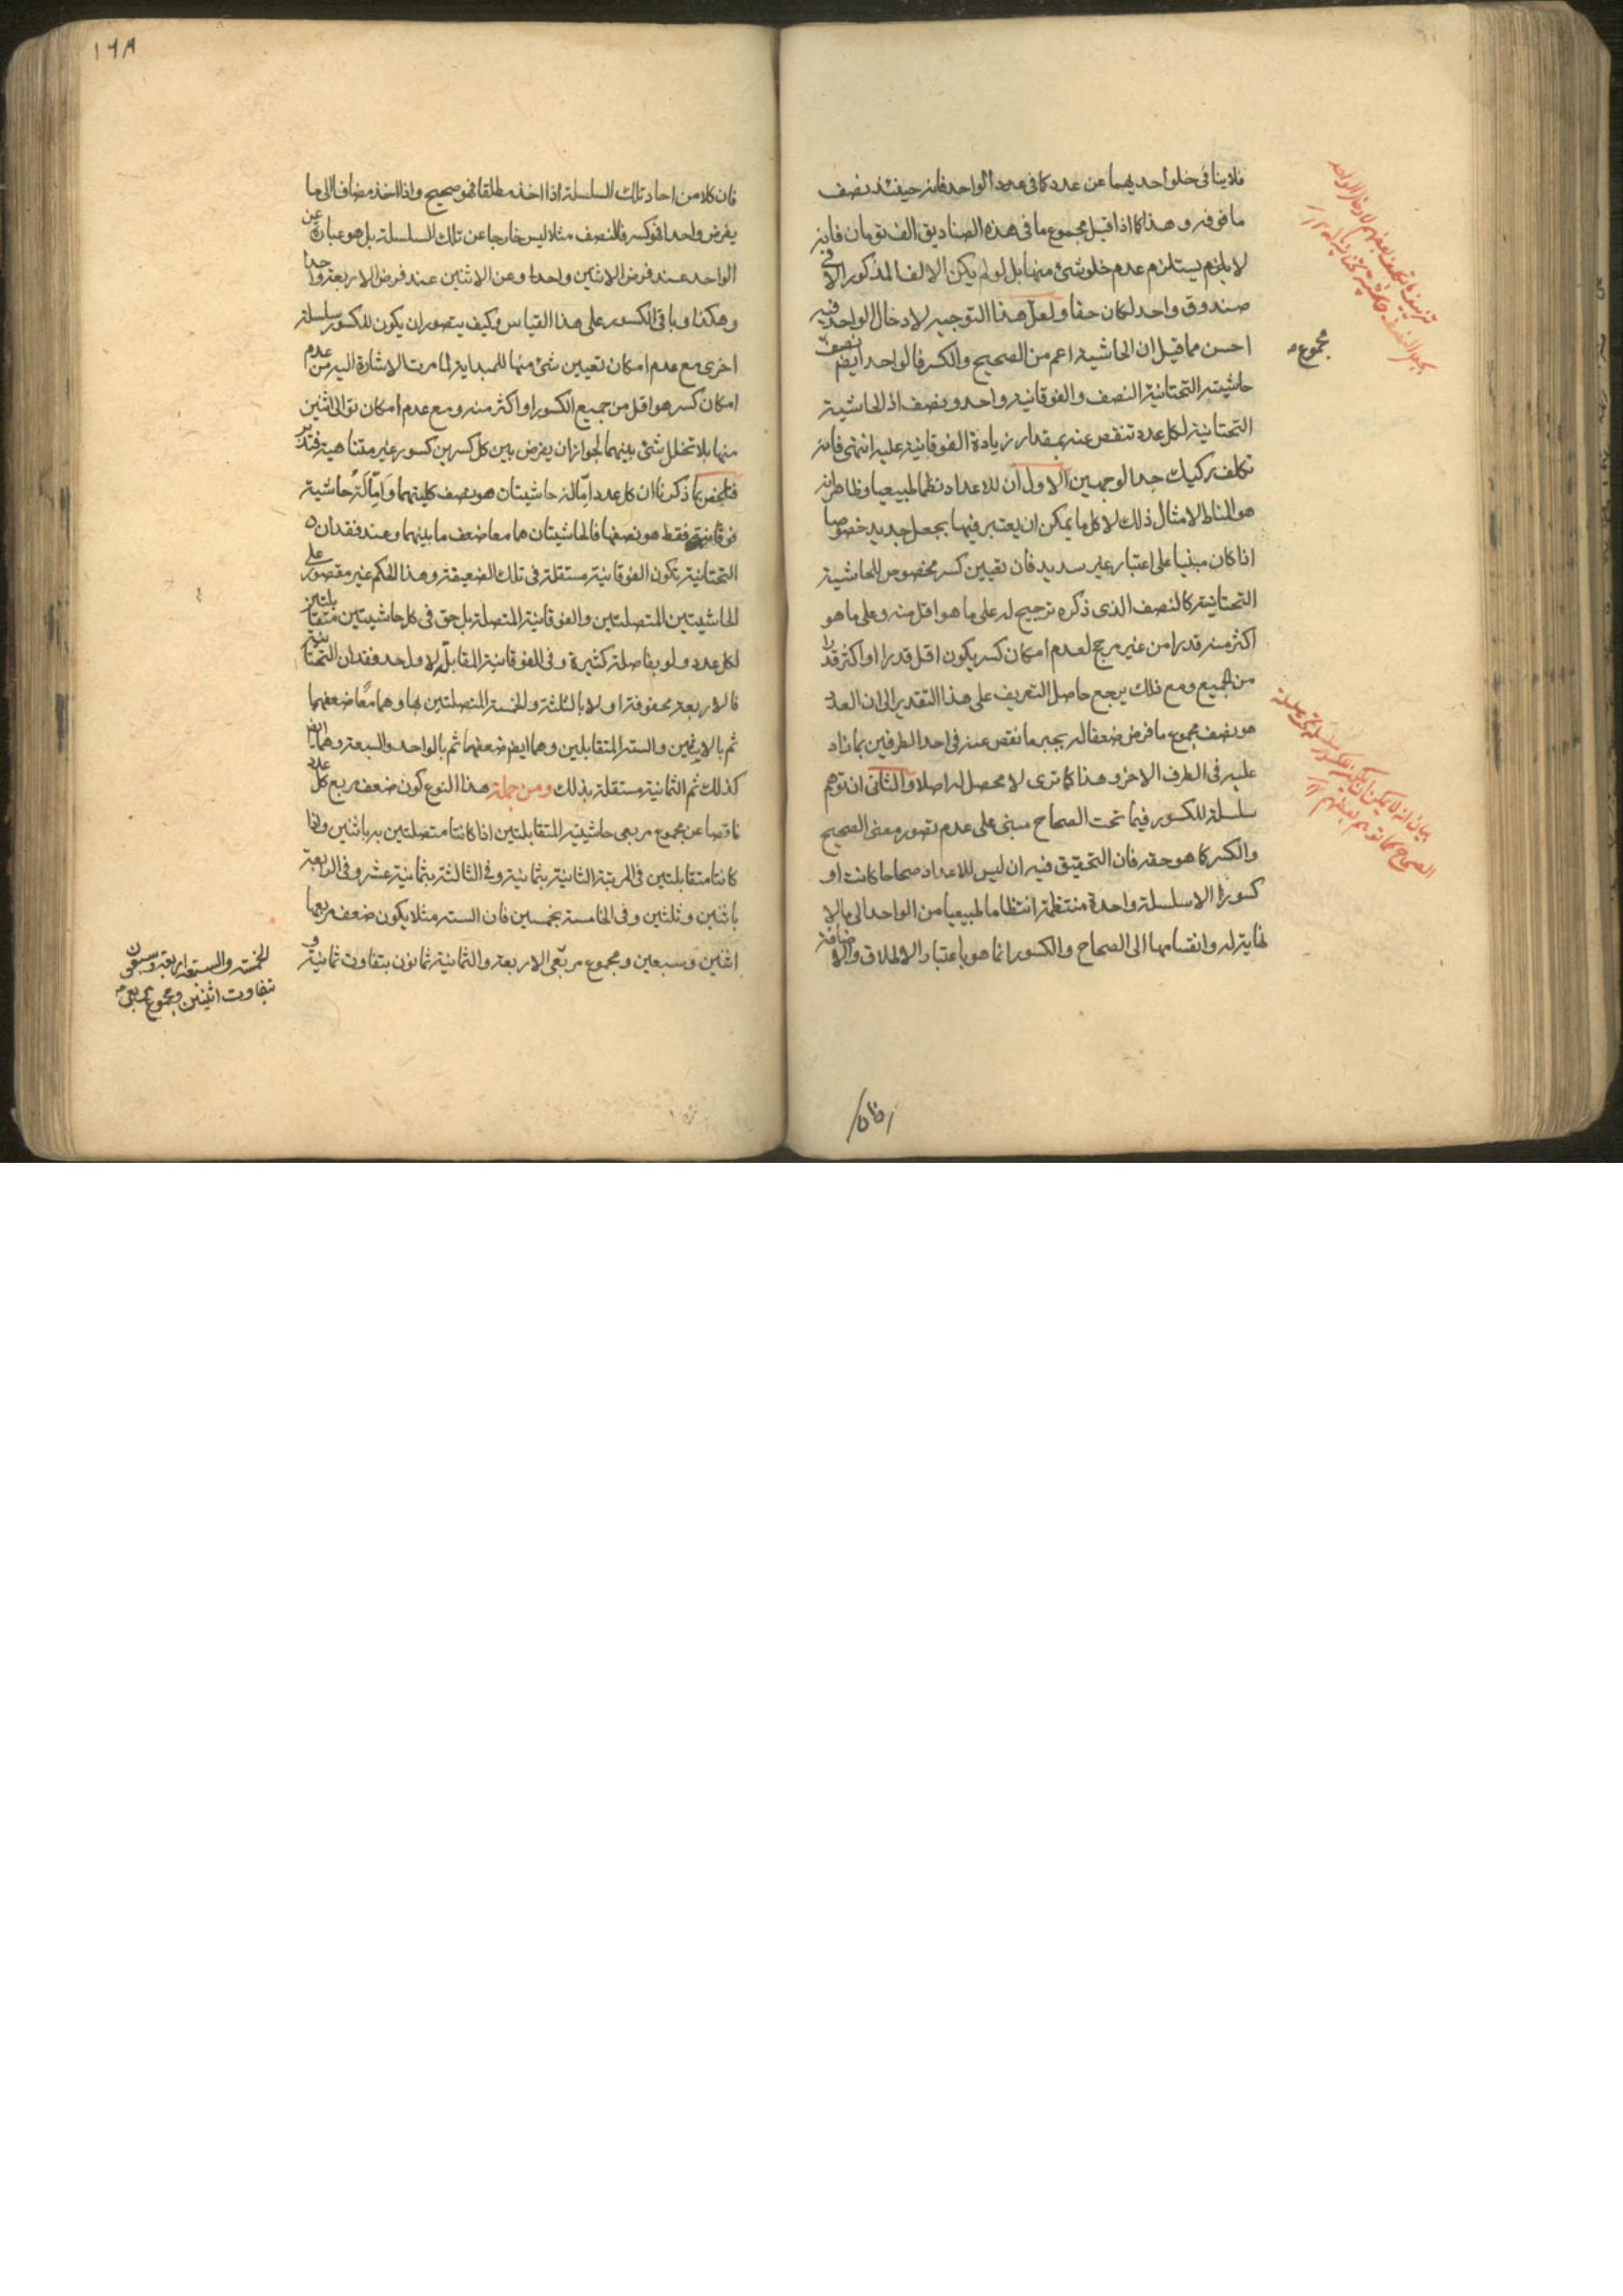 فلا ينافى خلو احديهما عن عدد كما فى عدد الواحد فانه حينئذ نصف
ما فوقه وهذا كما اذا قيل مجموع ما فى هذه الصناديق الف تومان فانه
لا يلزم يستلزم عدم خلو شئ منها بل لو لم يكن الالف المذكور الا فى
صندوق واحد لكان حقا ولعل هذا التوجيه لادخال الواحد فيه
احسن مما قيل ان الحاشية اعم من الصحيح والكسر فالواحد ايضم نصف
حاشيته التحتانية النصف والفوقانية واحد ونصف اذ الحاشية
التحتانية لكل عدد تنقص عنه بمقدار زيادة الفوقانية عليه انتهى فانه
تكلف ركيك جدا لوجهين الاول ان للاعداد نظما طبيعيا وظاهر انه
هو المناط لامثال ذلك لا كل ما يمكن ان يعتبر فيها بجعل جديد خصوصا
اذا كان مبنيا على اعتبار غير سديد فان تعيين كسر مخصوص للحاشية
التحتانية كالنصف الذى ذكره ترجيح له على ما هو اقل منه وعلى ما هو
اكثر منه قدرا من غير مرجح لعدم امكان كسر يكون اقل قدرا او اكثر قدرا
من الجميع ومع ذلك يرجع حاصل التعريف على هذا التقدير الى ان العدد
هو نصف مجموع ما فرض ضعفا له بجبر ما نقص عنه فى احد الطرفين بما زاد
عليه فى الطرف الاخر وهذا كما ترى لا محصل له اصلا والثانى ان توهم
سلسلة للكسور فيما تحت الصحاح مبنى على عدم تصور معنى الصحيح
والكسر كما هو حقه فان التحقيق فيه ان ليس للاعداد صحاحا كانت او
كسورا الا سلسلة واحدة منتظمة انتظاما طبيعيا من الواحد الى ما لا
نهاية له وانقسامها الى الصحاح والكسور انما هو باعتبار الاطلاق والاضافة
مجموع
بيان انه لا يمكن ان يكون للكسور سلسلة تحت سلسلة
الصحاح كما توهم بعضهم
١٦٨
فان كلا من احاد تلك السلسلة اذا اخذ مطلقا فهو صحيح واذا اخذ مضافا الى ما
يفرض واحدا فهو كسر فالنصف مثلا ليس خارجا عن تلك السلسلة بل هو عبارة عن
الواحد عند فرض الاثنين واحدا وعن الاثنين عند فرض الاربعة واحدا
وهكذا وباقى الكسور على هذا القياس وكيف يتصور ان يكون للكسور سلسلة
اخرى مع عدم امكان تعيين شئ منها للمبداية لما مرت الاشارة اليه من عدم
امكان كسر هو اقل من جميع الكسور او اكثر منه ومع عدم امكان توالى اثنين
منها بلا تخلل شئ بينهما لجواز ان يفرض بين كل كسرين كسور غير متناهية فتدبر
فتلخص بما ذكرنا ان كل عدد اما له حاشيتان هو نصف كليتهما واما له حاشية
فوقانية فقط هو نصفها فالحاشيتان هما معا ضعف ما بينهما وعند فقدان
التحتانية تكون الفوقانية مستقلة فى تلك الضعيفة وهذا الحكم غير مقصور على
الحاشيتين المتصلتين والفوقانية المتصلة بل حق فى كل حاشيتين متقابلتين
لكل عدد ولو بفاصلة كثيرة وفى الفوقانية المقابلة لاولاحد فقدان التحتانية
فالاربعة محفوفة اولا بالثلثة والخمسة المتصلتين بها وهما معا ضعفها
ثم بالاثنين والستة المتقابلين وهما ايضم ضعفها ثم بالواحد والسبعة وهما ايضا
كذلك ثم الثمانية مستقلة بذلك ومن جملة هذا النوع كون ضعف مربع كل عدد
ناقصا عن مجموع مربعى حاشيتيه المتقابلتين اذا كانتا متصلتين به باثنين واذا
كانتا متقابلتين فى المرتبة الثانية بثمانية وفى الثالثة بثمانية عشر وفى الرابعة
باثنين وثلثين وفى الخامسة بخمسين فان الستة مثلا يكون ضعف مربعها
اثنين وسبعين ومجموع مربعى الاربعة والثمانية ثمانون بتفاوت ثمانية و
الخمسة والسبعة اربعة وسبعون
بتفاوت اثنين ومجموع مربعى